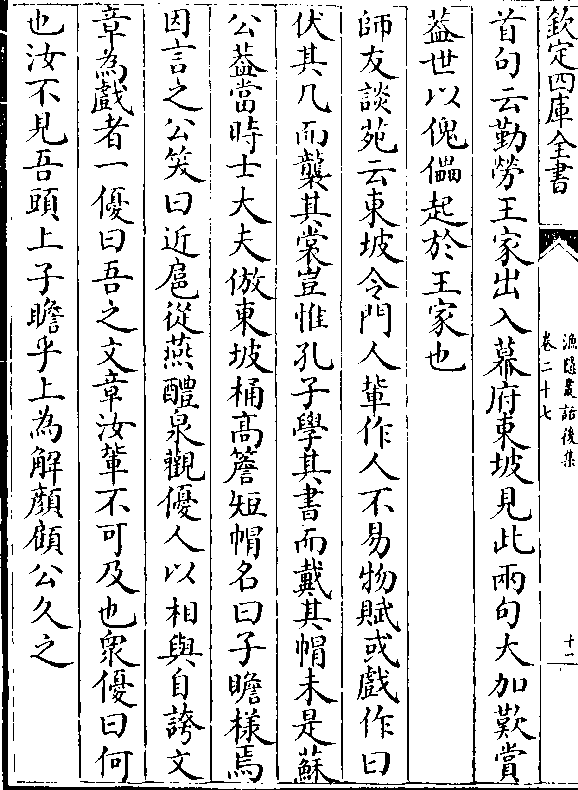 欽定四庫全書
漁隱叢話後集
卷二十七
十一
首句云勤勞王家出入幕府東坡見此兩句大加歎賞
葢世以傀儡起於王家也
師友談苑云東坡令門人軰作人不易物賦或戲作曰
伏其几而襲其裳豈惟孔子學其書而戴其帽未是蘇
公葢當時士大夫倣東坡桶髙簷短帽名曰子瞻様焉
因言之公笑曰近扈從燕醴泉觀優人以相與自誇文
章為戲者一優曰吾之文章汝軰不可及也衆優曰何
也汝不見吾頭上子瞻乎上為解顔顧公久之